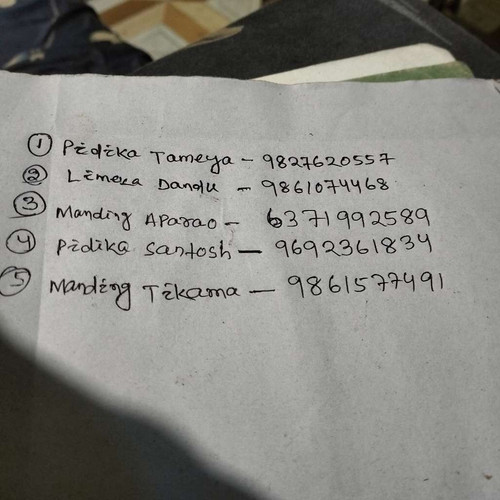 1 Pidika Tameya - 9827620557
2 Limeka Dandu - 9861074468
3 Manding Aparao - 6371992589
4 Pidika Santosh - 9692361834
5 Manding Tikama - 9861577491